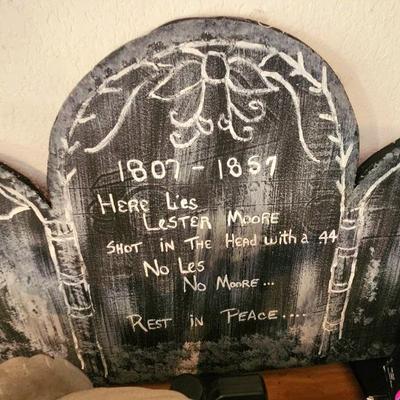 1807 - 1857
HERE LIES
LESTER MOORE
SHOT IN THE HEAD WITH a 44
NO LES
NO MOORE...
REST IN PEACE....